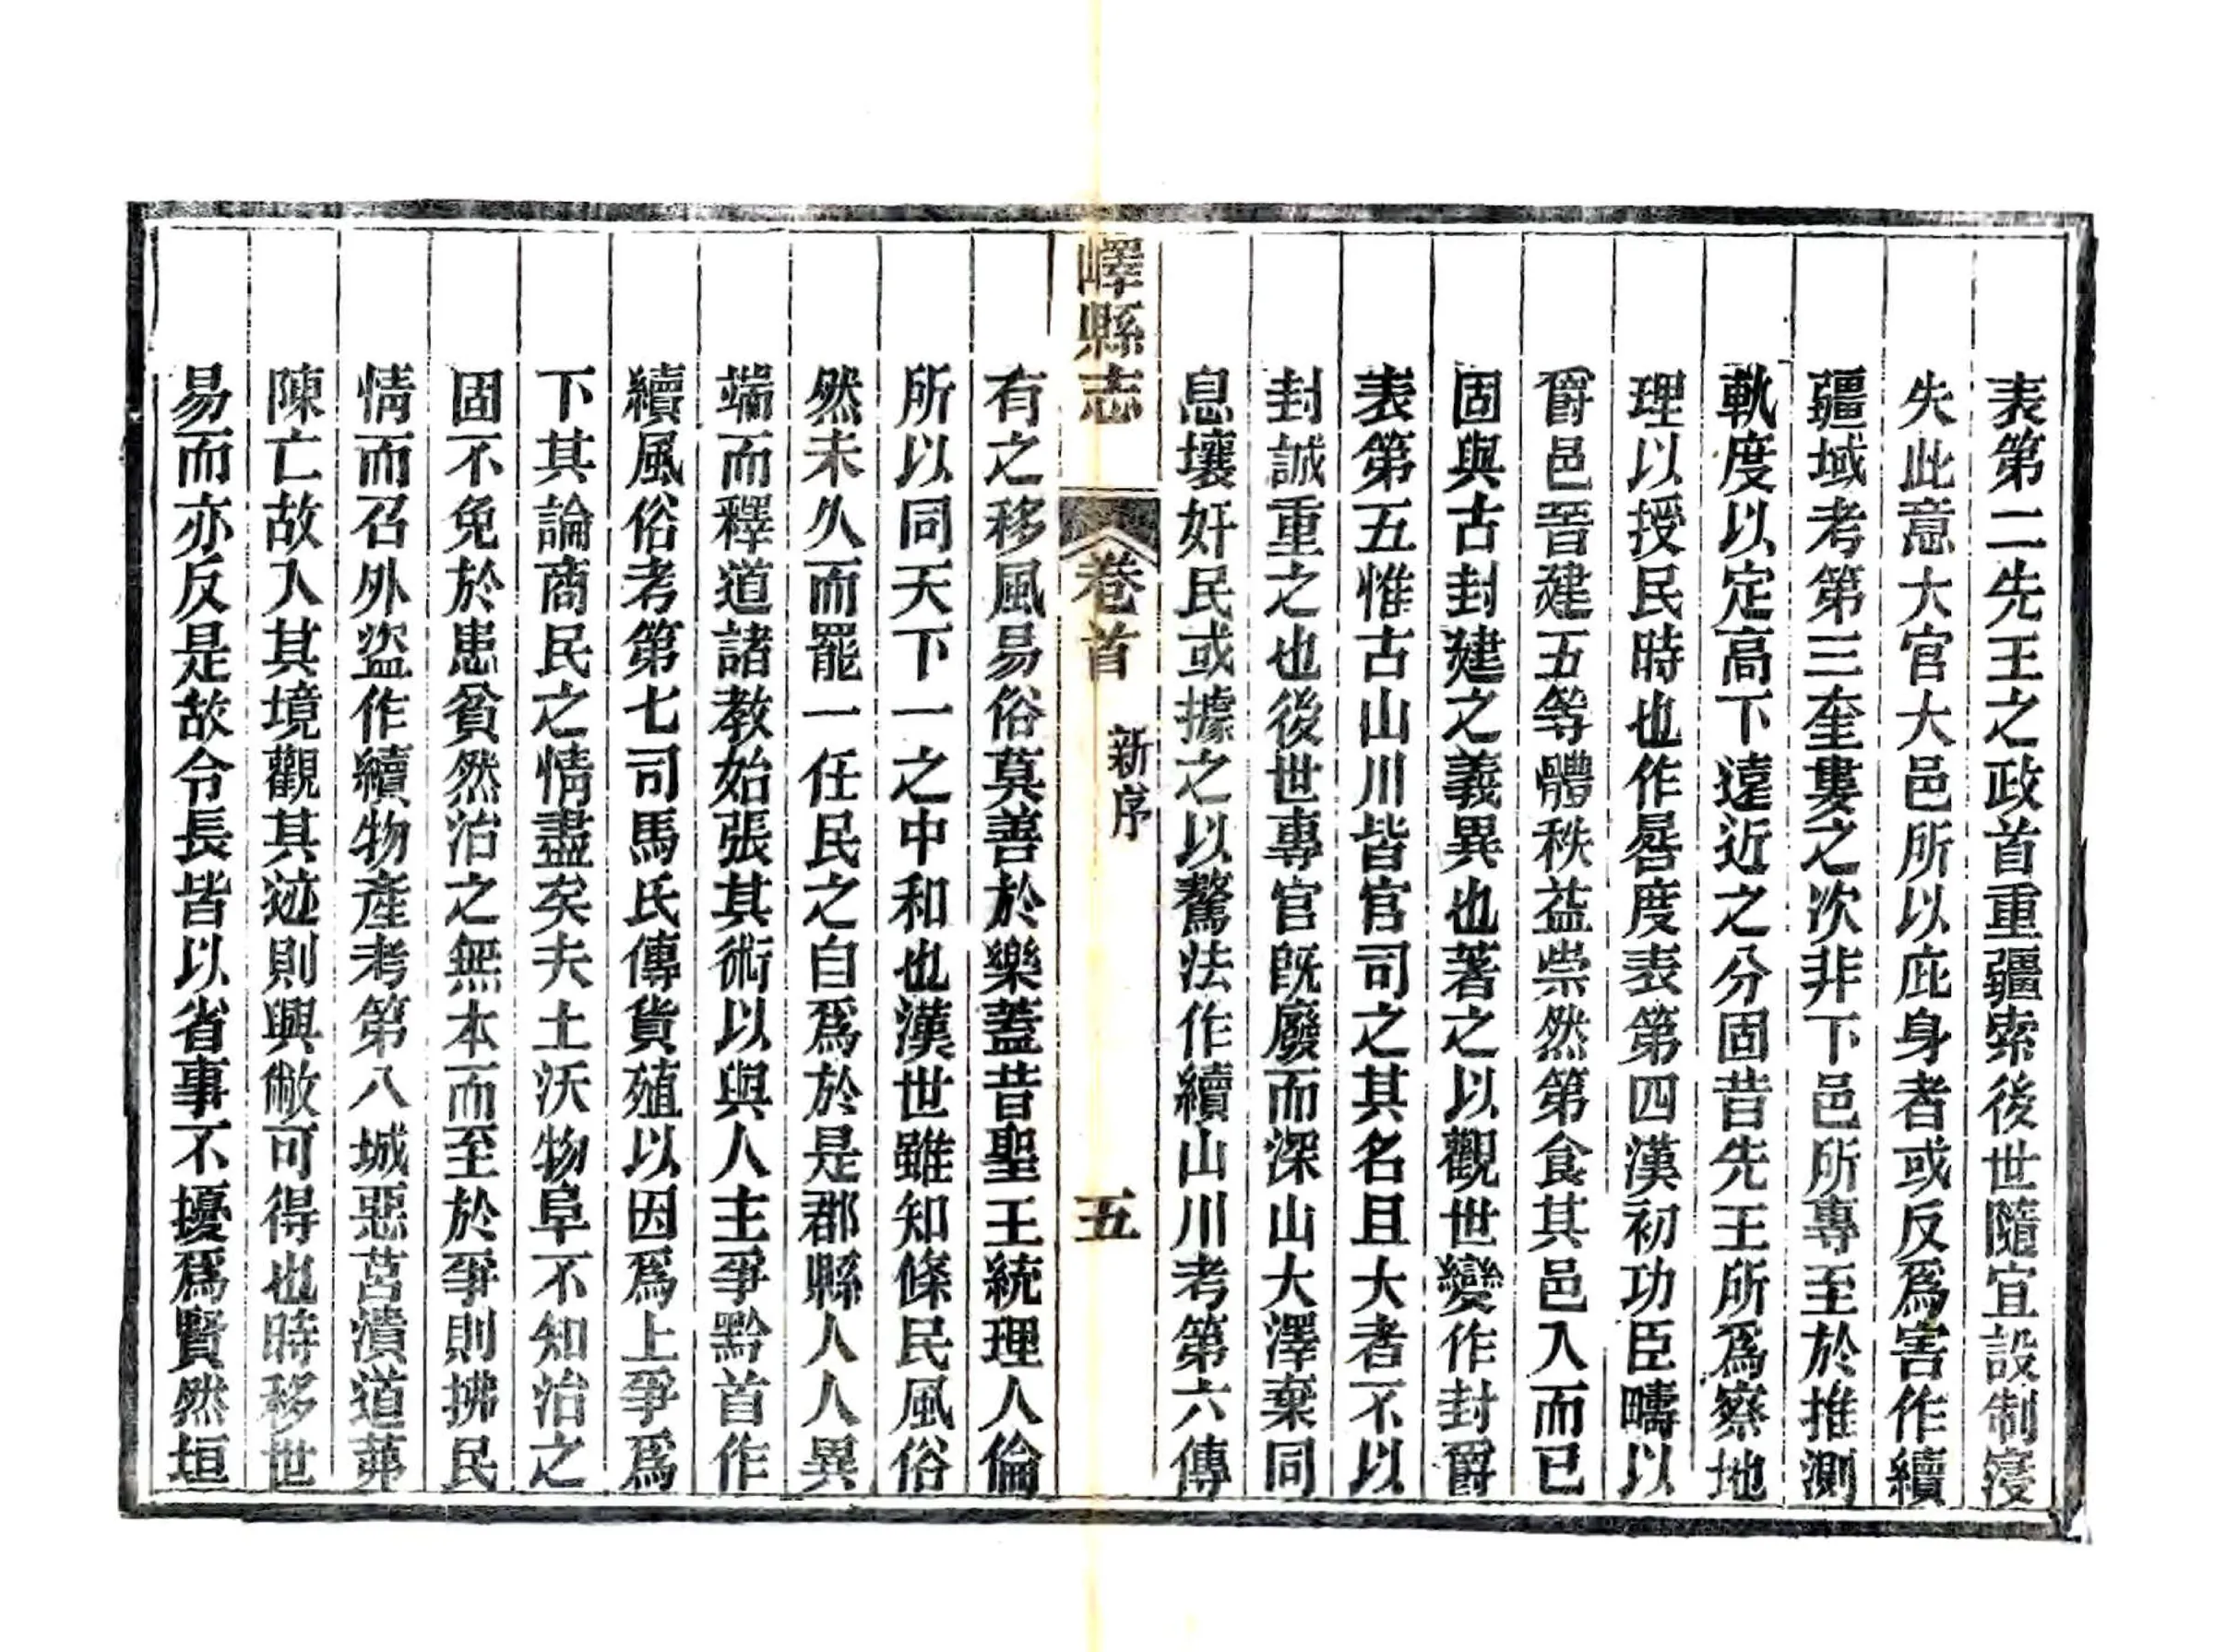 表第二先王之政首重疆索後世隨宜設制寖
失此意大官大邑所以庇身者或反爲害作續
疆域考第三奎婁之次非下邑所專至於推測
軌度以定高下遠近之分固昔先王所爲察地
理以授民時也作晷度表第四漢初功臣疇以
爵邑晉建五等體秩益崇然第食其邑入而已
固與古封建之義異也著之以觀世變作封爵
表第五惟古山川皆官司之其名且大者不以
封誠重之也後世專官旣廢而深山大澤棄同
息壤奸民或據之以驁法作續山川考第六傳
嶧縣志
卷首
新序
五
有之移風易俗莫善於樂蓋昔聖王統理人倫
所以同天下一之中和也漢世雖知條民風俗
然未久而罷一任民之自爲於是郡縣人人異
端而釋道諸教始張其術以與人主爭黔首作
續風俗考第七司馬氏傳貨殖以因爲上爭爲
下其論商民之情盡矣夫土沃物阜不知治之
固不免於患貧然治之無本而至於爭則拂民
情而召外盜作續物產考第八城惡莒潰道茀
陳亡故入其境觀其迹則興敝可得也時移世
易而亦反是故令長皆以省事不擾爲賢然垣